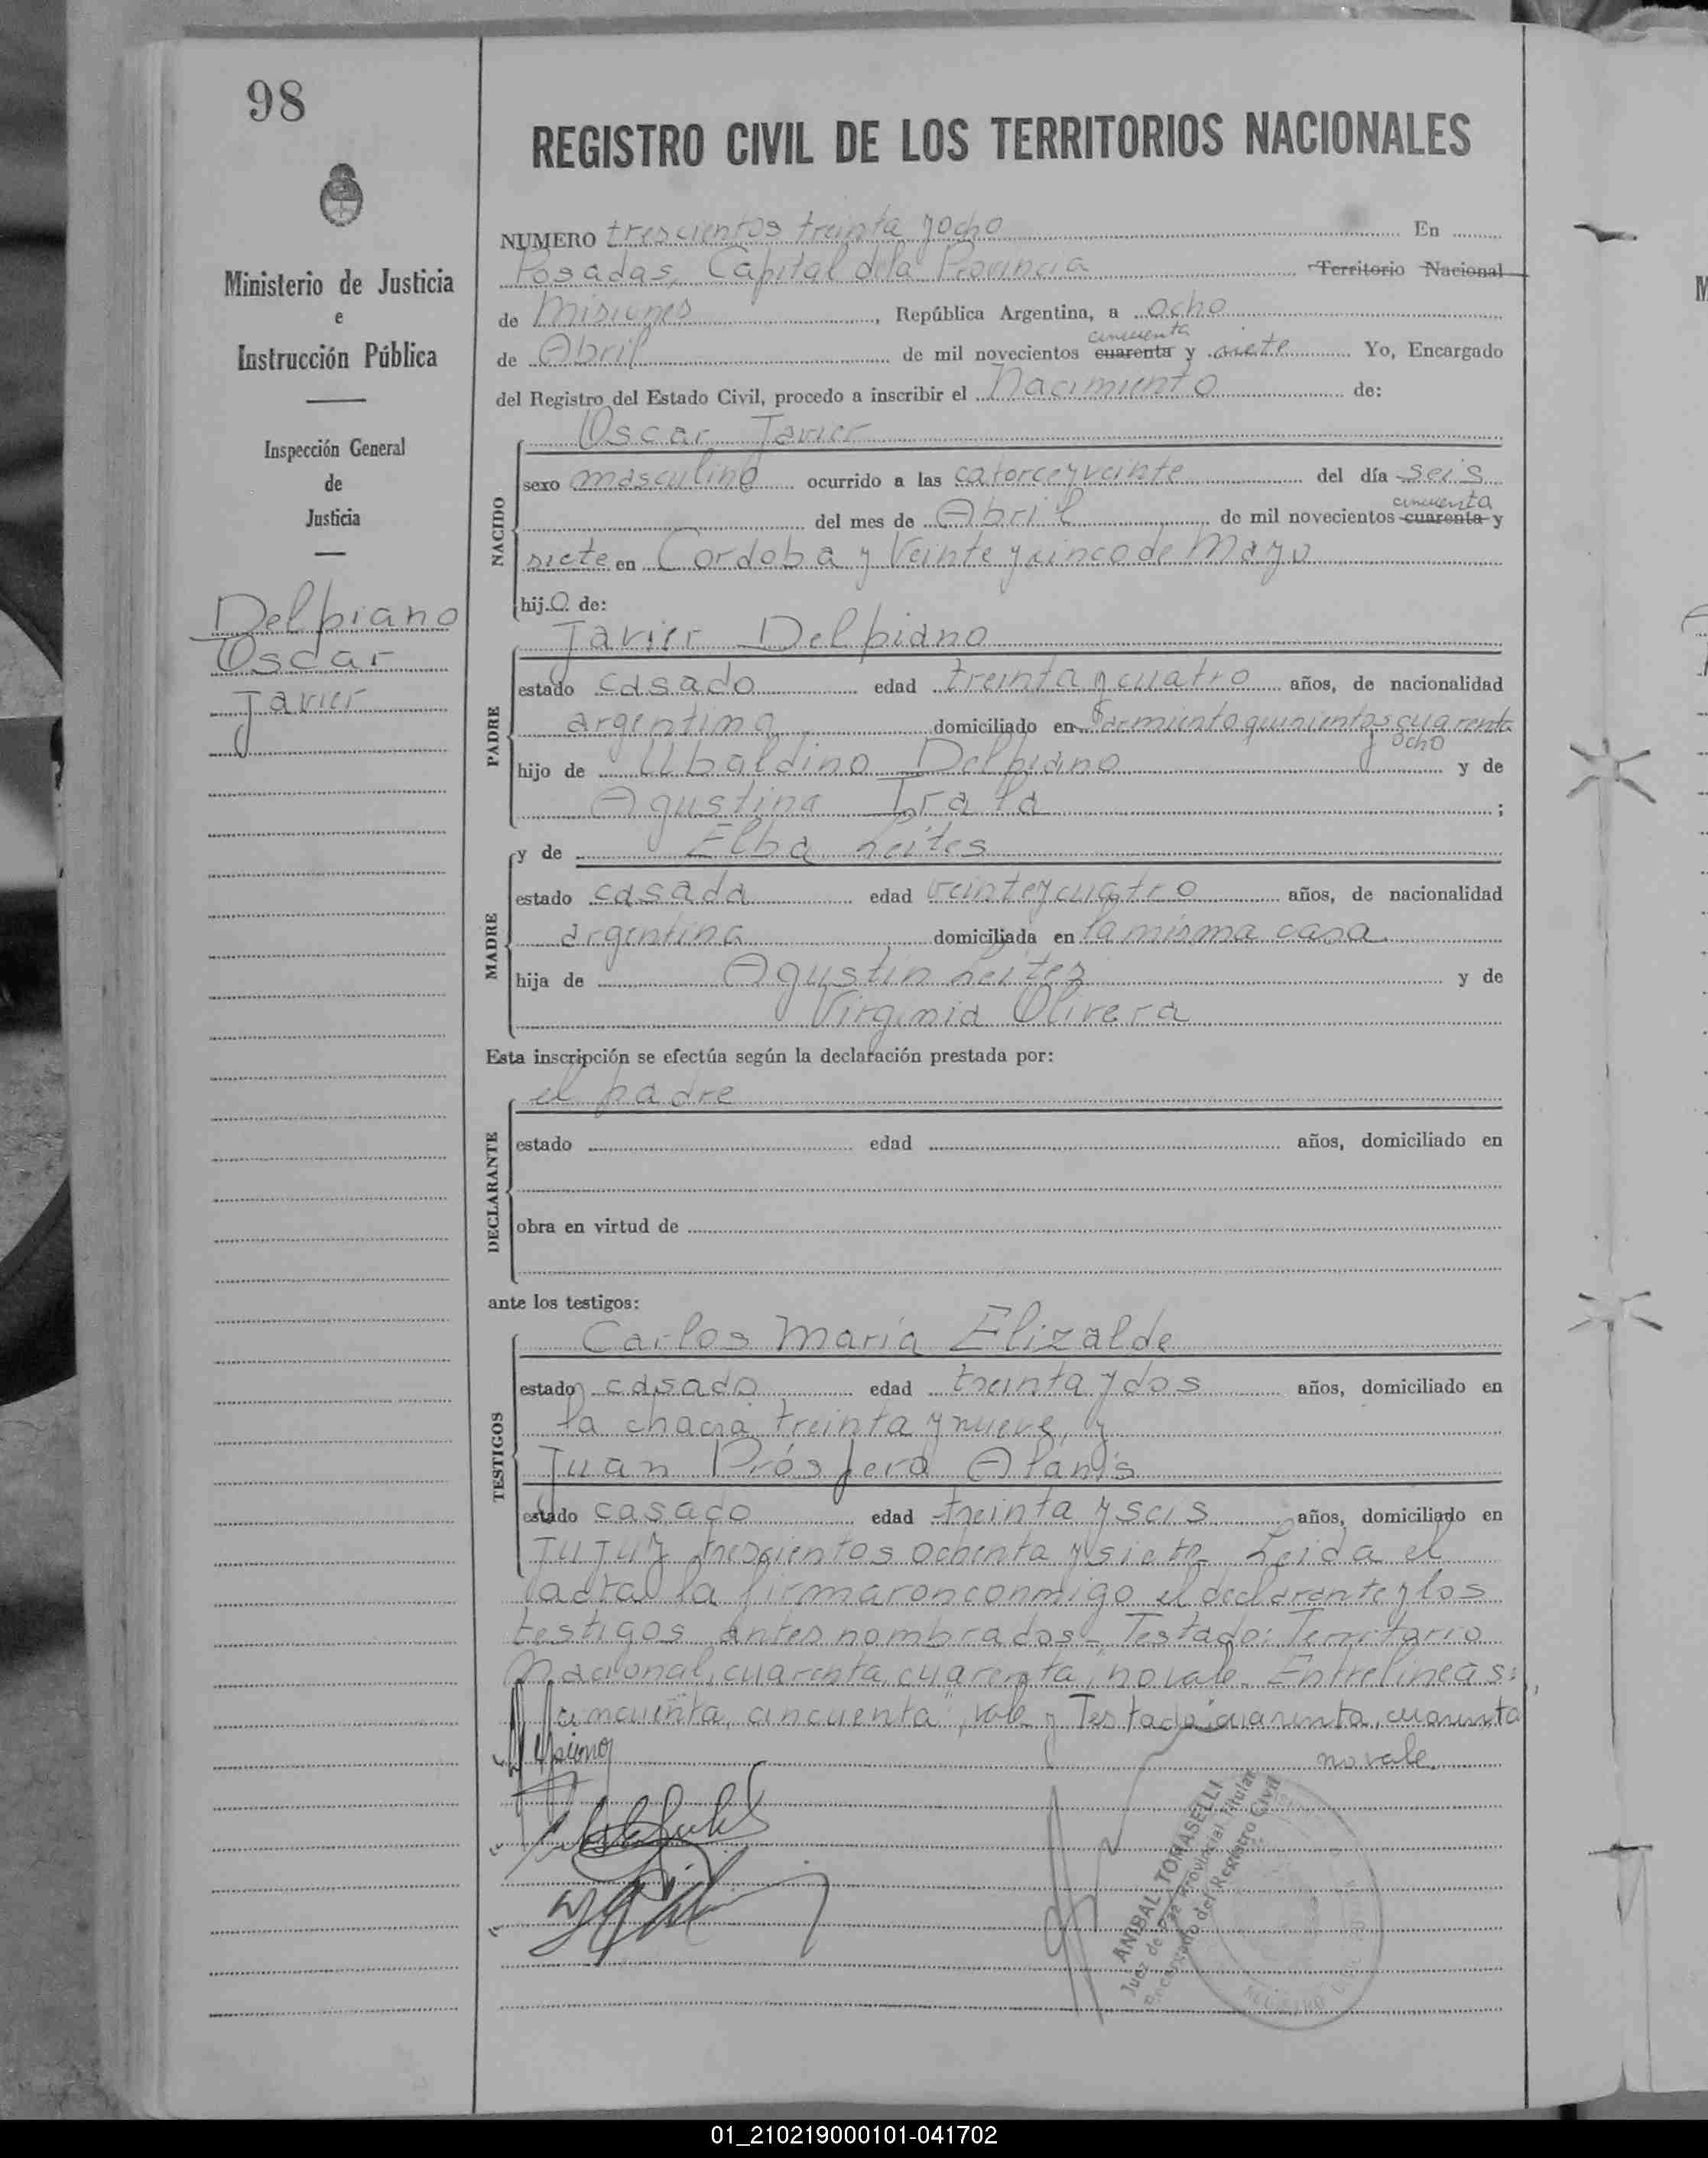 98
REGISTRO CIVIL DE LOS TERRITORIOS NACIONALES
Ministerio de Justicia
e
Instrucción Pública
Inspección General
de
Justicia
Delpiano
Oscar
Javier
NUMERO trescientos treinta y ocho En
Posadas, Capital de la Provincia Territorio Nacional
de Misiones, República Argentina, a ocho
cincuenta
de Abril de mil novecientos cuarenta y siete Yo, Encargado
del Registro del Estado Civil, procedo a inscribir el Nacimiento de:
NACIDO
Oscar Javier
sexo masculino ocurrido a las catorce y veinte del día seis
cincuenta
del mes de Abril de mil novecientos cuarenta y
siete en Cordoba y Veinte y cinco de Mayo
hijo de:
PADRE
Javier Delpiano
estado casado edad treinta y cuatro años, de nacionalidad
argentina domiciliado en Sarmiento quinientos cuarenta
y ocho
hijo de Ubaldino Delpiano y de
Agustina Irala;
MADRE
y de Elba Leites
estado casada edad veinte y cuatro años, de nacionalidad
argentina domiciliada en la misma casa
hija de Agustin Leites y de
Virginia Olivera
Esta inscripción se efectúa según la declaración prestada por:
DECLARANTE
el padre
estado edad años, domiciliado en
obra en virtud de
ante los testigos:
TESTIGOS
Carlos María Elizalde
estado casado edad treinta y dos años, domiciliado en
la chacra treinta y nueve, y
Juan Próspero Alanís
estado casado edad treinta y seis años, domiciliado en
Jujuy trescientos ochenta y siete Leida el
acta la firmaron conmigo el declarante y los
testigos antes nombrados - Testado: Territorio
Nacional, cuarenta, cuarenta, "no vale. Entrelineas:
"cincuenta, cincuenta", vale y Testado cuarenta, cuarenta
no vale.
ANIBAL TOMASELLI
Juez de Paz Provincial Titular
Encargado del Registro Civil
01_210219000101-041702